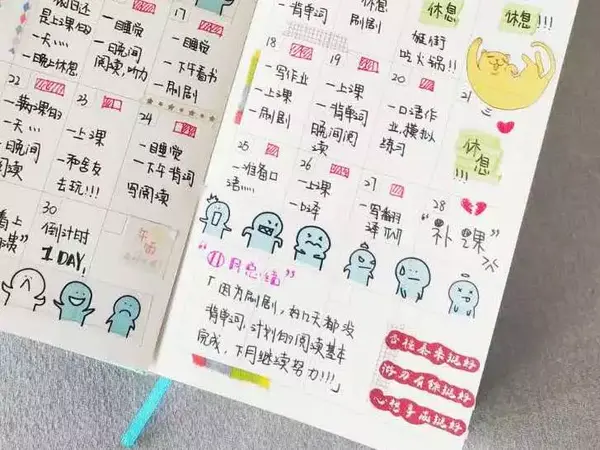 是上课日
一天....
一晚上休息
17
一睡觉
一下午看书
一刷剧
一睡觉
一晚间
阅读,听力
22
一满课的
一天...
一晚间
阅读
23
一上课
一和舍友
去玩!!!
24
一睡觉
一下午背词
写阅读
30
倒计时
1 DAY!
一背单词
休息
刷剧
休息
逛街
吃火锅!!
休息!!!
18
一写作业
一上课
一刷剧
19
一上课
一背单词
晚间阅
读
20
一口语作
业,模拟
练习
21
休息!
25
一准备口
语....
26
一上课
一口译
27
一写翻
译
28
“补课”
“11月总结”
「因为刷剧,有12天都没
背单词,计划的阅读基本
完成,下月继续努力!!!」
否极泰来挺好
游刃有馀挺好
心想事成挺好